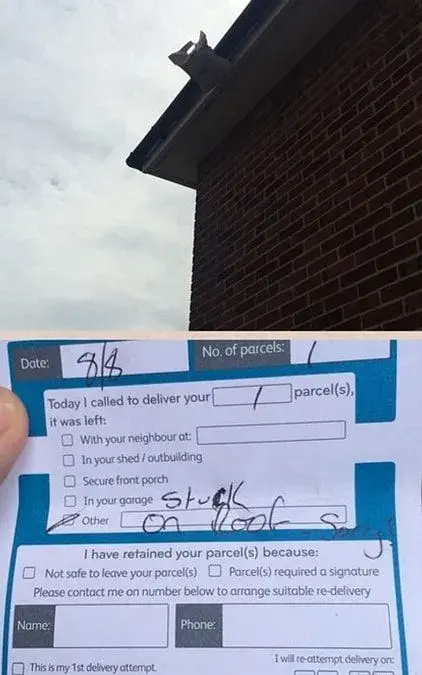 Date: 8/8 No. of parcels: 1
Today I called to deliver your 1 parcel(s),
it was left:
With your neighbour at:
In your shed / outbuilding
Secure front porch
In your garage Stuck
Other on Roof - Sorry!
I have retained your parcel(s) because:
Not safe to leave your parcel(s) Parcel(s) required a signature
Please contact me on number below to arrange suitable re-delivery
Name: Phone:
I will re-attempt delivery on:
This is my 1st delivery attempt.